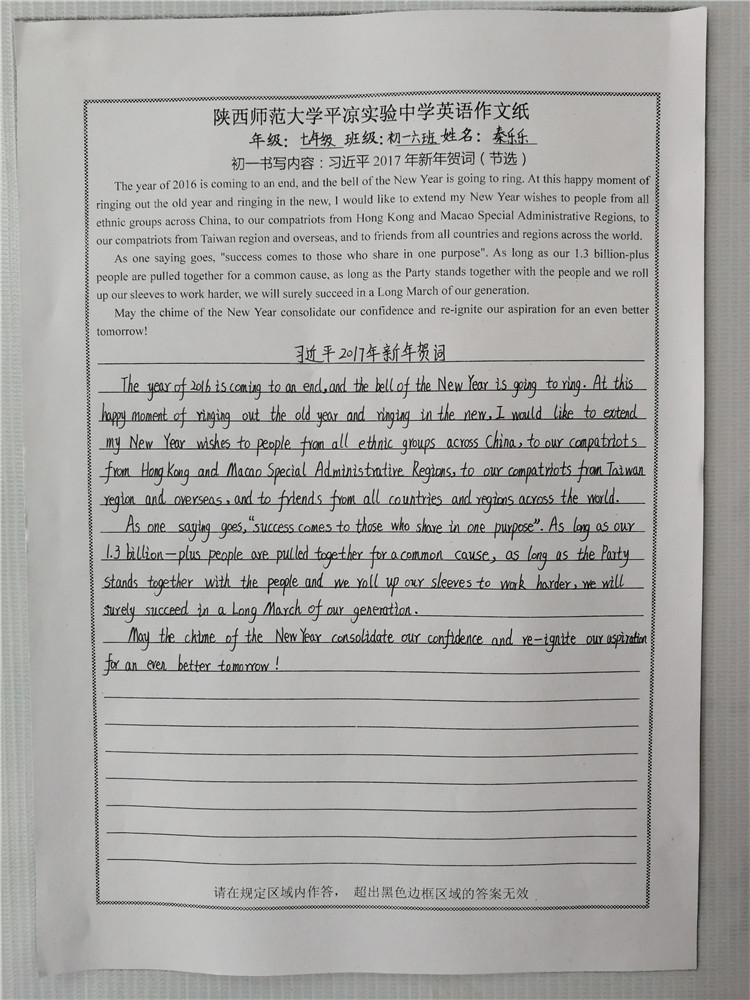 陕西师范大学平凉实验中学英语作文纸
年级：七年级 班级：初一六班 姓名：秦乐乐
初一书写内容：习近平 2017 年新年贺词（节选）
The year of 2016 is coming to an end, and the bell of the New Year is going to ring. At this happy moment of
ringing out the old year and ringing in the new, I would like to extend my New Year wishes to people from all
ethnic groups across China, to our compatriots from Hong Kong and Macao Special Administrative Regions, to
our compatriots from Taiwan region and overseas, and to friends from all countries and regions across the world.
As one saying goes, "success comes to those who share in one purpose". As long as our 1.3 billion-plus
people are pulled together for a common cause, as long as the Party stands together with the people and we roll
up our sleeves to work harder, we will surely succeed in a Long March of our generation.
May the chime of the New Year consolidate our confidence and re-ignite our aspiration for an even better
tomorrow!
习近平2017年新年贺词
The year of 2016 is coming to an end, and the bell of the New Year is going to ring. At this
happy moment of ringing out the old year and ringing in the new, I would like to extend
my New Year wishes to people from all ethnic groups across China, to our compatriots
from Hong Kong and Macao Special Administrative Regions, to our compatriots from Taiwan
region and overseas, and to friends from all countries and regions across the world.
As one saying goes, "success comes to those who share in one purpose". As long as our
1.3 billion-plus people are pulled together for a common cause, as long as the Party
stands together with the people and we roll up our sleeves to work harder, we will
surely succeed in a Long March of our generation.
May the chime of the New Year consolidate our confidence and re-ignite our aspiration
for an even better tomorrow!
请在规定区域内作答， 超出黑色边框区域的答案无效